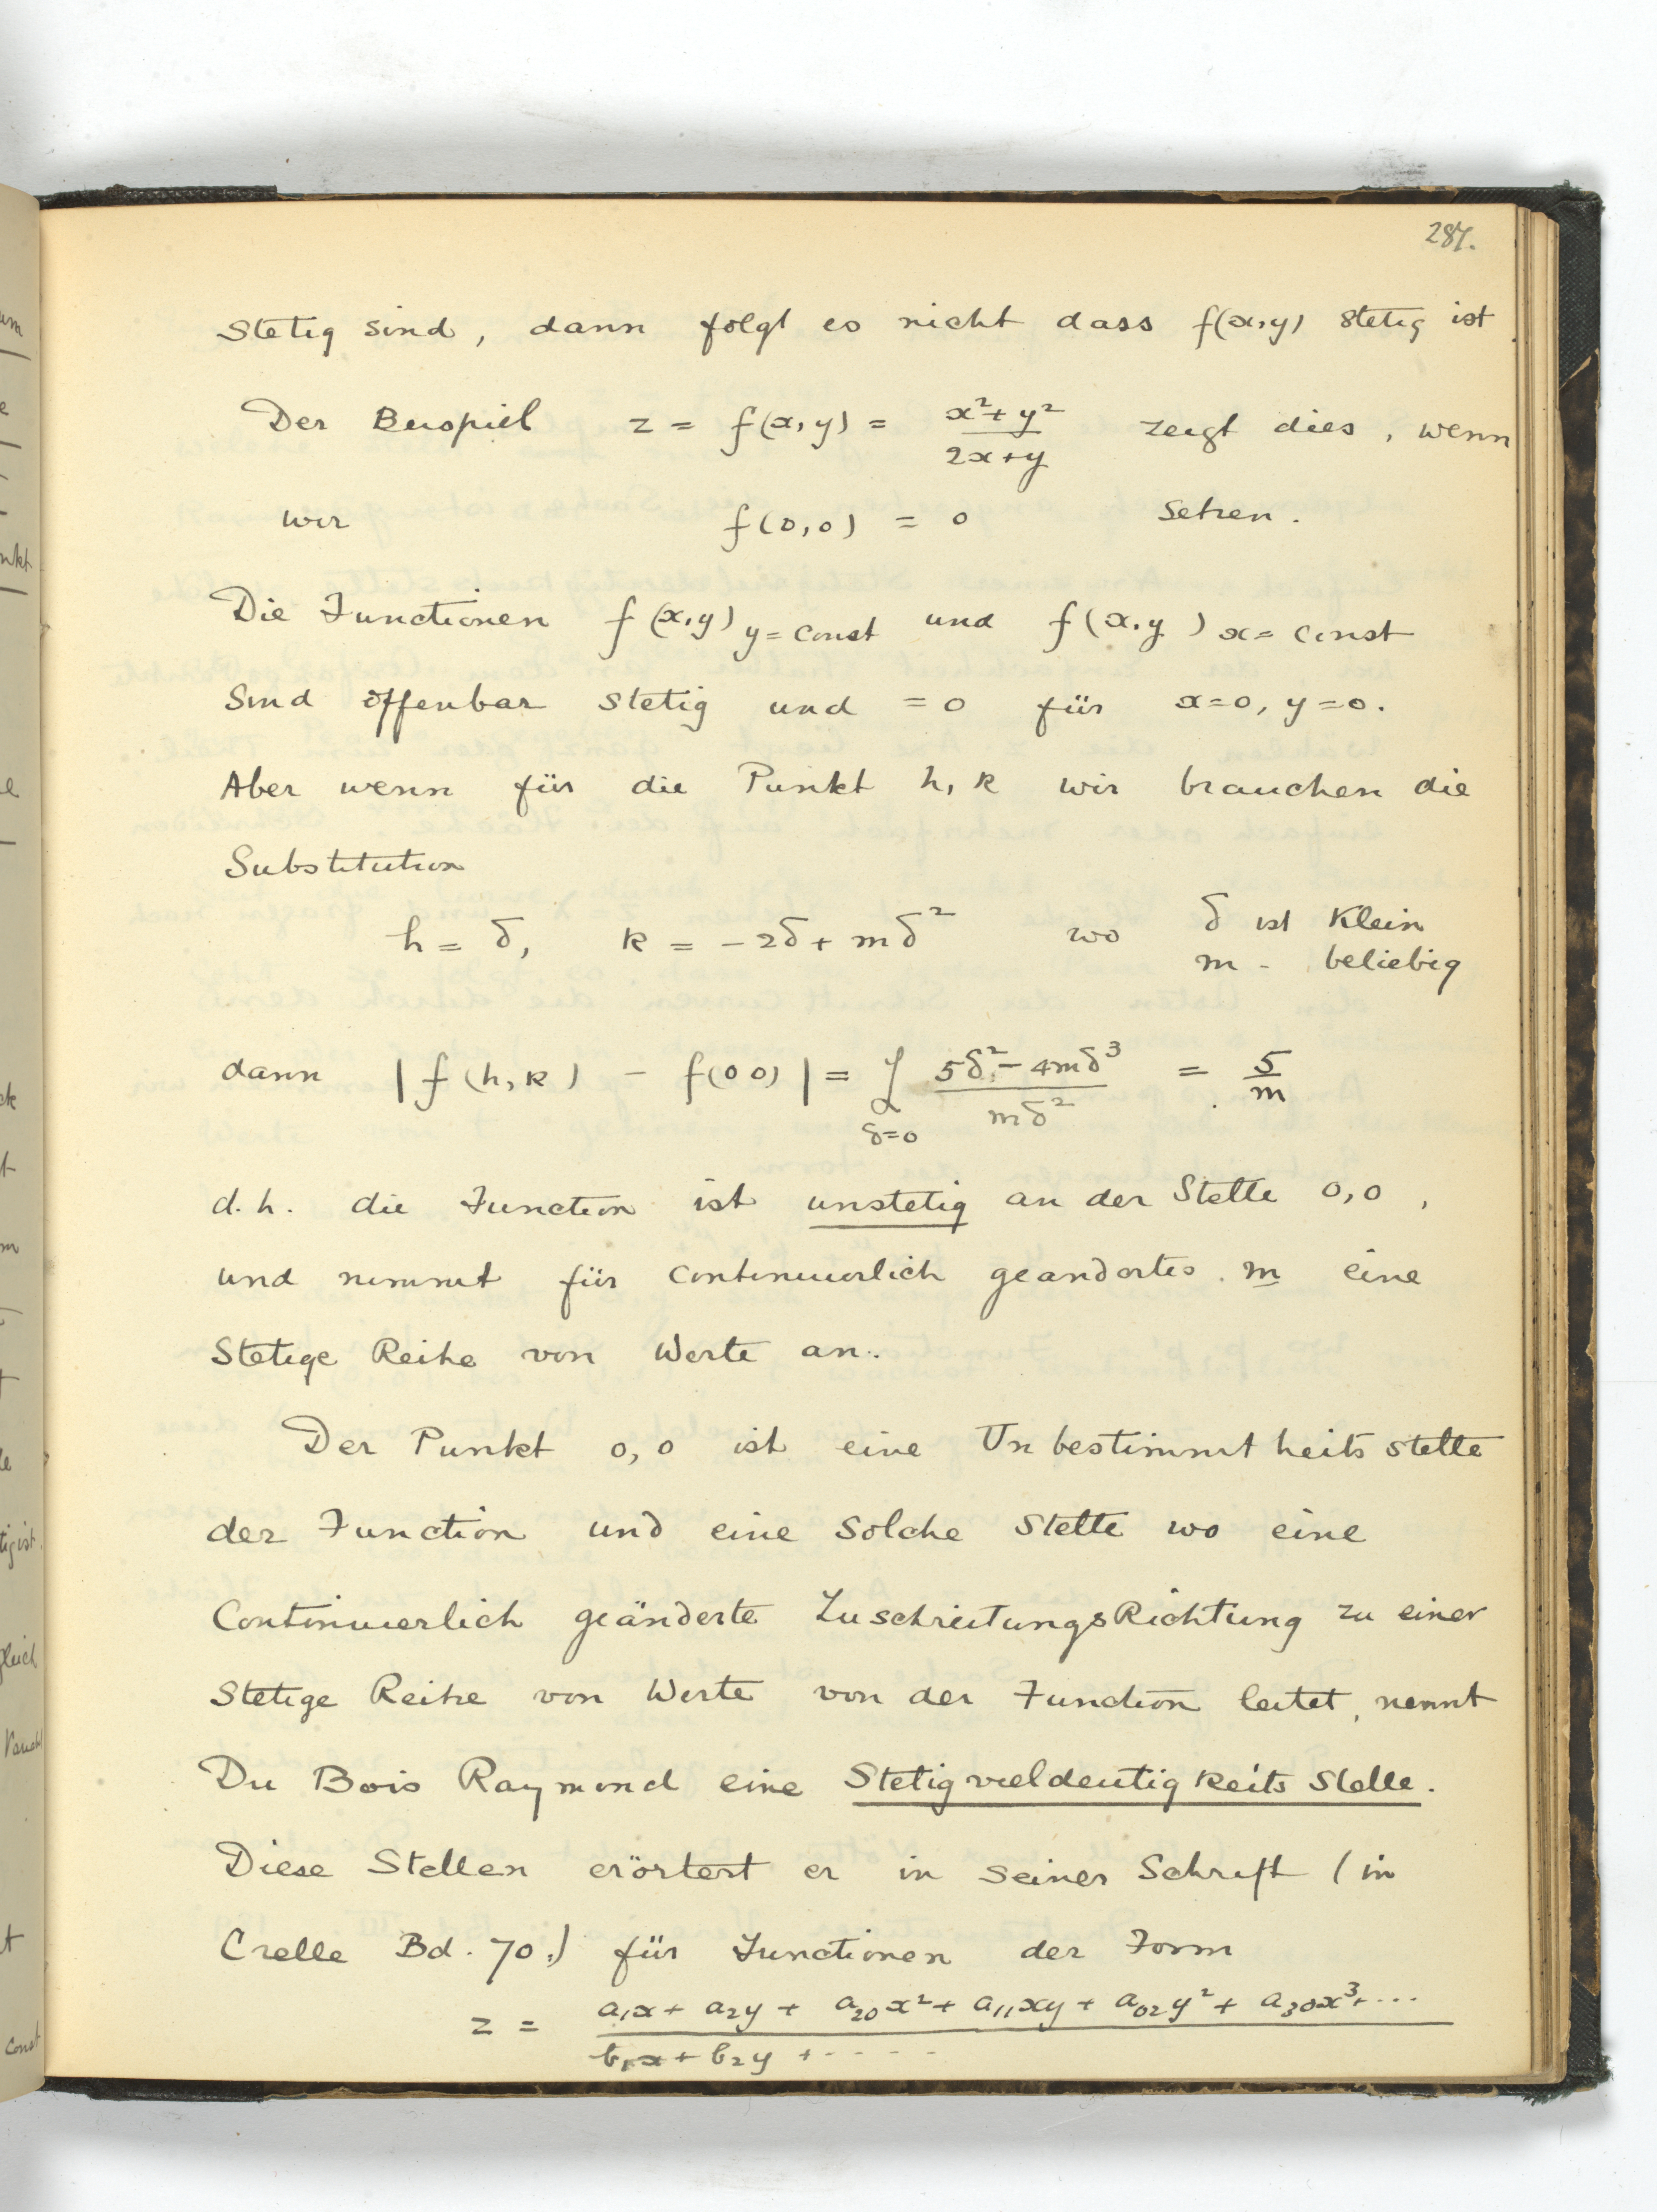 287.
Stetig sind, dann folgt es nicht dass f(x,y) stetig ist
Der Beispiel z = f(x,y) = (x²+y²)/(2x+y) zeigt dies, wenn
wir f(0,0) = 0 setzen.
Die Functionen f(x,y) y=const und f(x,y) x=const
Sind offenbar stetig und =0 für x=0, y=0.
Aber wenn für die Punkt h, k wir brauchen die
Substitution
h = δ, k = -2δ + mδ² wo δ ist klein
m - beliebig
dann |f(h,k) - f(00)| = L δ=0 (5δ²-4mδ³)/(mδ²) = 5/m
d.h. die Function ist unstetig an der Stelle 0,0,
und nimmt für continuierlich geandertes m eine
Stetige Reihe von Werte an.
Der Punkt 0,0 ist eine Unbestimmtheitsstelle
der Function und eine solche Stelle wo eine
Continuierlich geänderte ZuschreitungsRichtung zu einer
Stetige Reihe von Werte von der Function leitet, nennt
Du Bois Raymond eine Stetigvieldeutigkeits Stelle.
Diese Stellen erörtert er in seiner Schrift (in
Crelle Bd. 70.) für Functionen der Form
z = (a₁x + a₂y + a₂₀x² + a₁₁xy + a₀₂y² + a₃₀x³+...)/(b₁x + b₂y + .....)